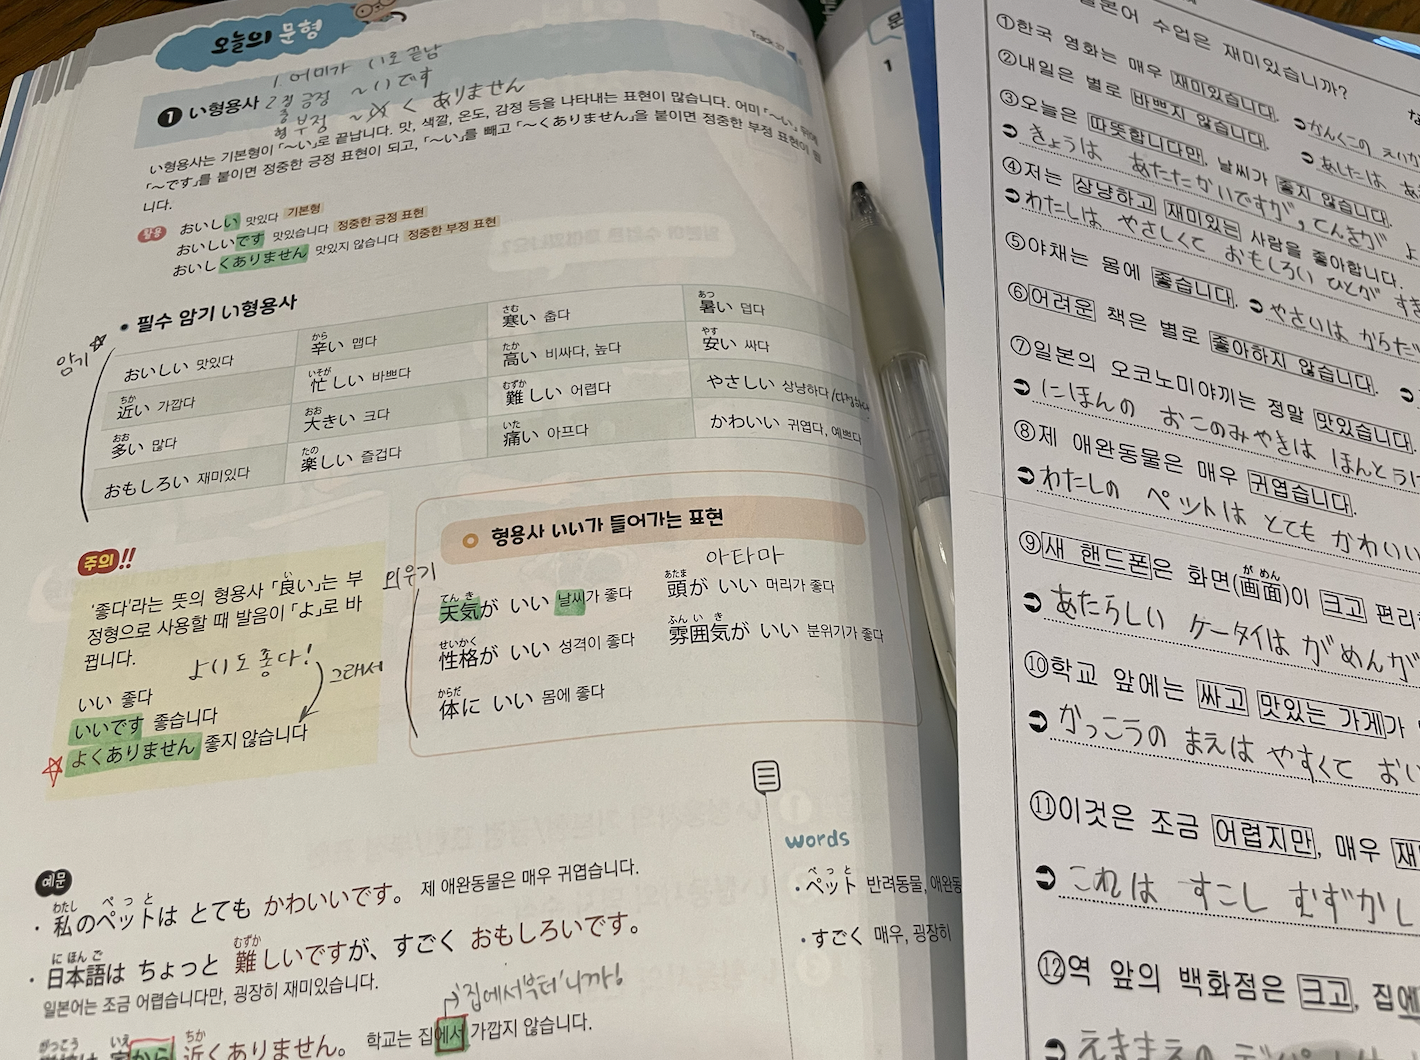 오늘의 문형
Track 37
1. 어미가 い로 끝남
❶ い형용사
2. 정중 긍정 ~いです
형 부정 ~い くありません
い형용사는 기본형이 「~い」로 끝납니다. 맛, 색깔, 온도, 감정 등을 나타내는 표현이 많습니다. 어미 「~い」 뒤에
「~です」를 붙이면 정중한 긍정 표현이 되고, 「~い」를 빼고 「~くありません」을 붙이면 정중한 부정 표현이 됩
니다.
활용 おいしい 맛있다 기본형
おいしいです 맛있습니다 정중한 긍정 표현
おいしくありません 맛있지 않습니다 정중한 부정 표현
암기 ☆
• 필수 암기 い형용사
おいしい 맛있다 辛い 맵다 寒い 춥다 暑い 덥다
から さむ あつ
近い 가깝다 忙しい 바쁘다 高い 비싸다, 높다 安い 싸다
ちか いそが たか やす
多い 많다 大きい 크다 難しい 어렵다 やさしい 상냥하다
おお おお むずか
おもしろい 재미있다 楽しい 즐겁다 痛い 아프다 かわいい 귀엽다, 예쁘다
たの いた
주의!!
'좋다'라는 뜻의 형용사 「良い」는 부
い
정형으로 사용할 때 발음이 「よ」로 바
뀝니다.
よい도 좋다!
그래서
いい 좋다
いいです 좋습니다
よくありません 좋지 않습니다
외우기
형용사 いい가 들어가는 표현
아타마
てんき
天気が いい 날씨가 좋다
あたま
頭が いい 머리가 좋다
せいかく
性格が いい 성격이 좋다
ふんいき
雰囲気が いい 분위기가 좋다
からだ
体に いい 몸에 좋다
예문
わたし ぺっと
・私のペットは とても かわいいです。 제 애완동물은 매우 귀엽습니다.
にほんご むずか
・日本語は ちょっと 難しいですが、すごく おもしろいです。
일본어는 조금 어렵습니다만, 굉장히 재미있습니다.
'집에서부터'니까!
がっこう いえ ちか
家から 近くありません。 학교는 집에서 가깝지 않습니다.
words
ぺっと
・ペット 반려동물, 애완동
・すごく 매우, 굉장히
문
1
일본어 수업은 재미있습니까?
①한국 영화는 매우 재미있습니다.
かんこくの えいが
②내일은 별로 바쁘지 않습니다.
あしたは あ
③오늘은 따뜻합니다만, 날씨가 좋지 않습니다.
きょうは あたたかいですが, てんきが よ
④저는 상냥하고 재미있는 사람을 좋아합니다.
わたしは やさしくて おもしろい ひとが すき
⑤야채는 몸에 좋습니다.
やさいは からだ
⑥어려운 책은 별로 좋아하지 않습니다.
⑦일본의 오코노미야끼는 정말 맛있습니다.
にほんの おこのみやきは ほんとうに
⑧제 애완동물은 매우 귀엽습니다.
わたしの ペットは とても かわいい
⑨새 핸드폰은 화면(画面)이 크고 편리
がめん
あたらしい ケータイは がめんが
⑩학교 앞에는 싸고 맛있는 가게가
がっこうの まえは やすくて おい
⑪이것은 조금 어렵지만, 매우 재
これは すこし むずかし
⑫역 앞의 백화점은 크고, 집에
えきまえの デパート